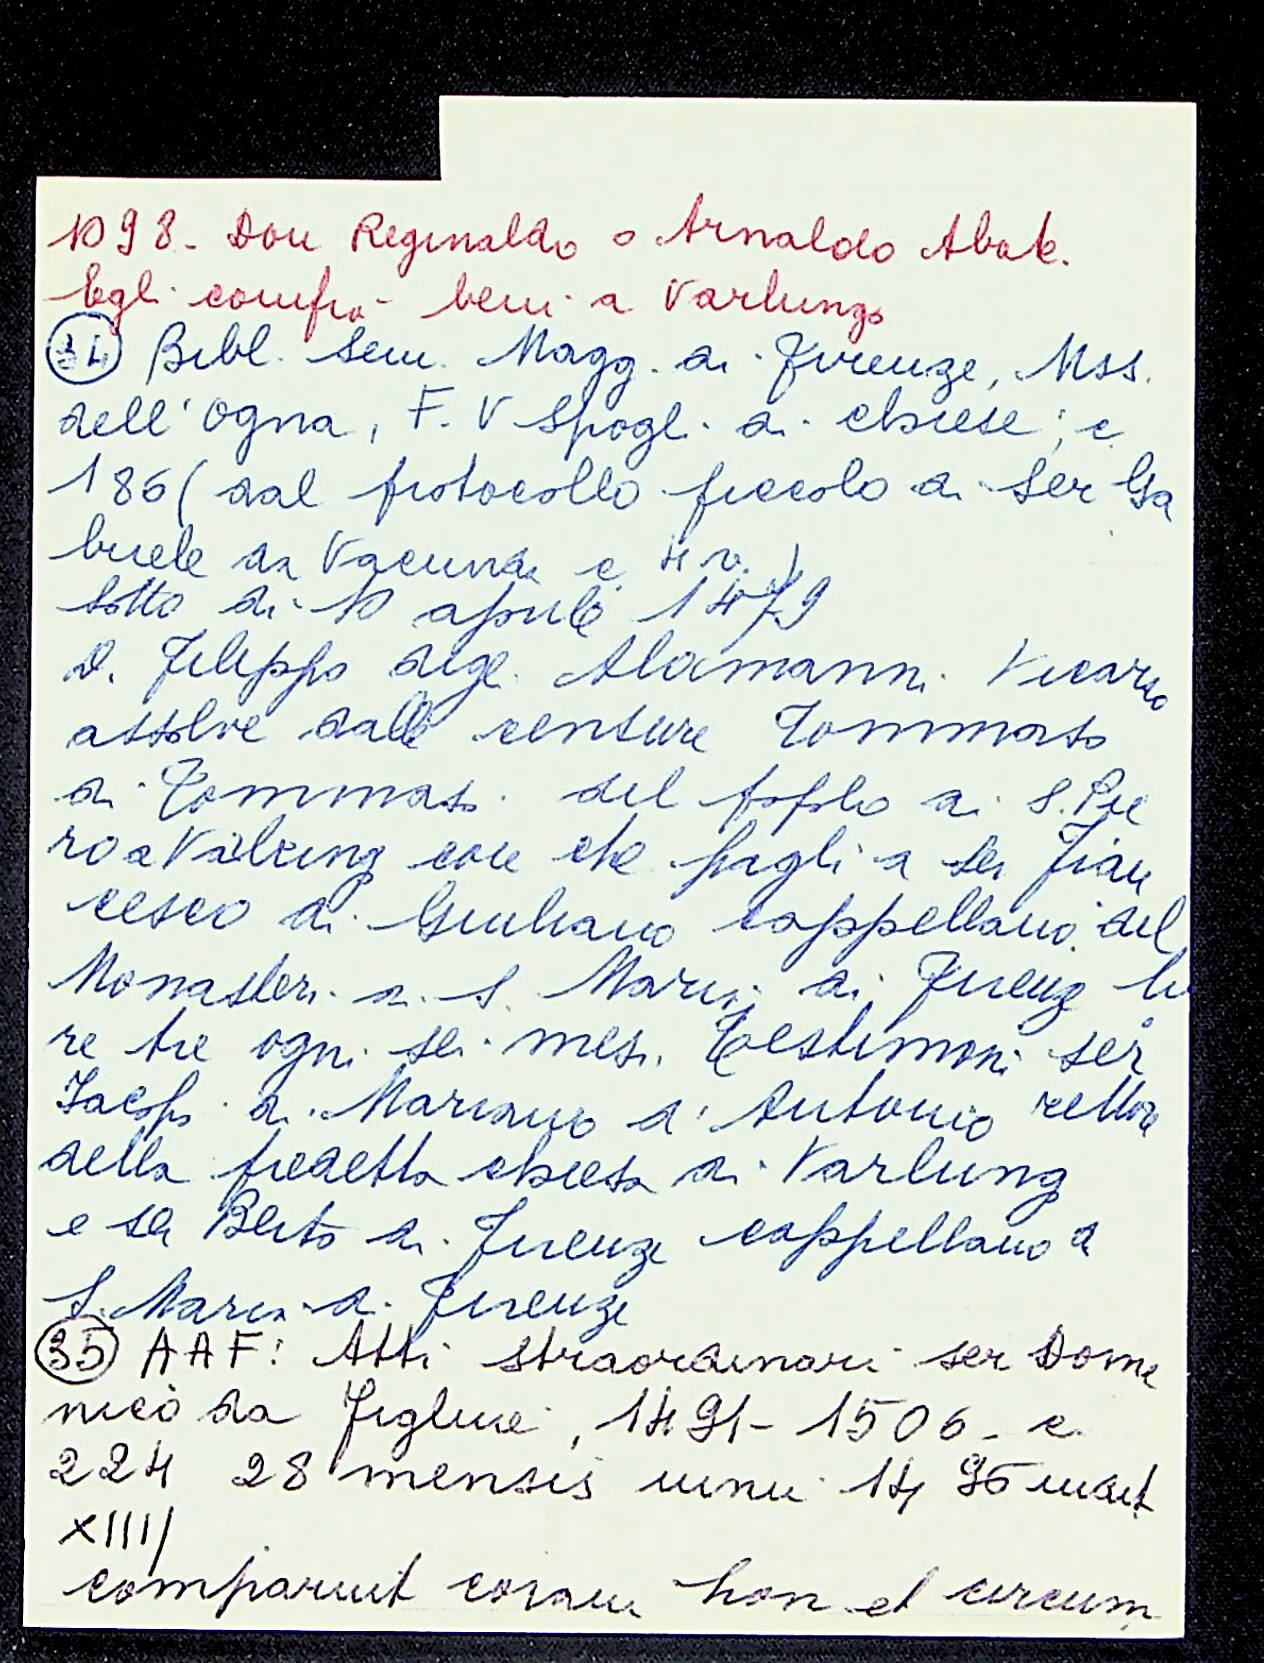 1098 - Don Reginaldo o Arnaldo Abate.
Egli comprò beni a Varlungo
34 Bibl. Sem. Magg. di Firenze, Mss.
dell'Ogna, F. V Spogli di chiese; c
186 (dal protocollo piccolo di Ser Ga
briele da c 4 v.)
sotto di 10 aprile 1479
D. Filippo degli Alamanni Vicario
assolve dalle censure Tommaso
di Tommaso del popolo di S. Pie
ro a Varlungo con che paghi a ser Fran
cesco di Giuliano cappellano del
Monastero di S. Maria di Firenze li
re tre ogni sei mesi. Testimoni ser
Iacopo di Mariano d'Antonio rettore
della predetta chiesa di Varlungo
e ser Berto di Firenze cappellano a
S. Maria di Firenze
35 AAF: Atti straordinari ser Dome
nico da Figline, 1491-1506 - c.
224 28 mensis iunii 1495 indict
XIII/
comparuit coram hon et circum